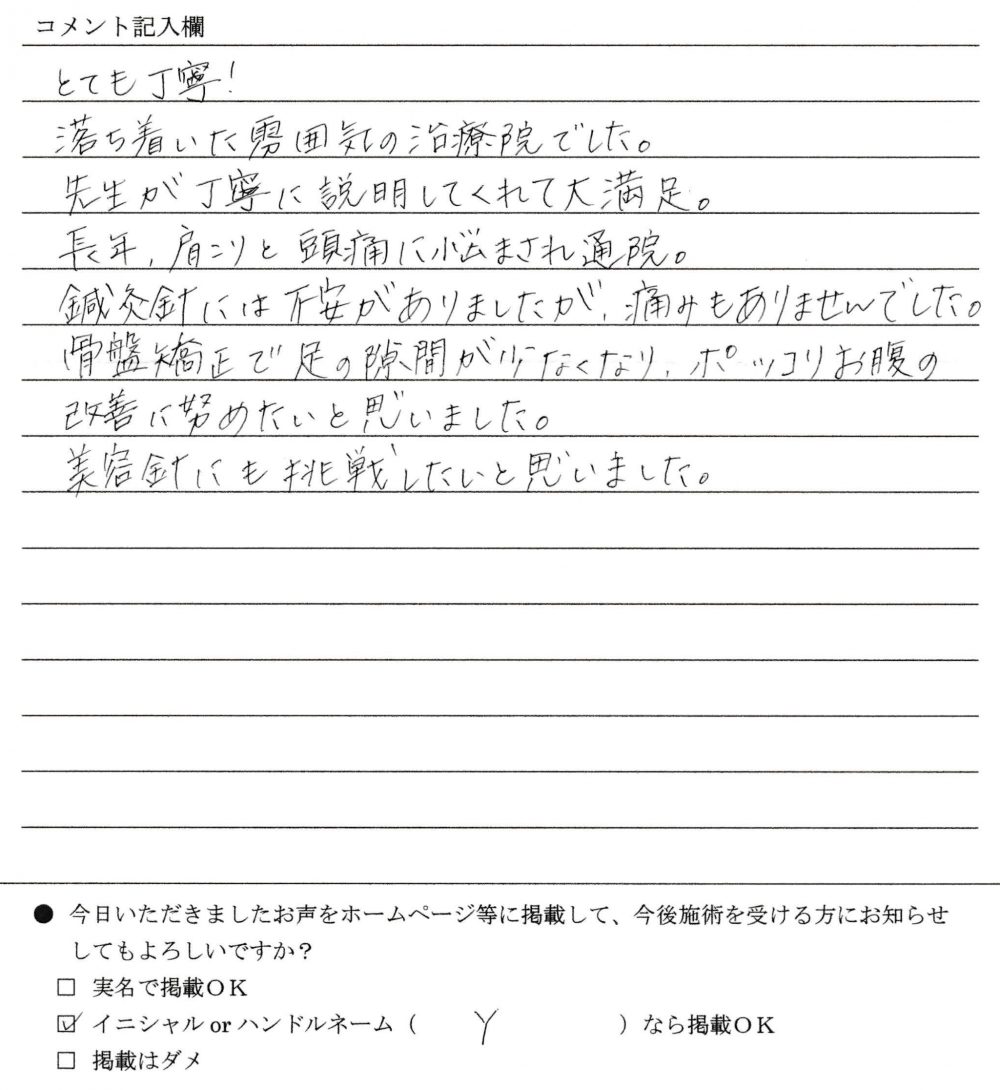 コメント記入欄
とても丁寧!
落ち着いた雰囲気の治療院でした。
先生が丁寧に説明してくれて大満足。
長年,肩こりと頭痛に悩まされ通院。
鍼灸針には不安がありましたが,痛みもありませんでした。
骨盤矯正で足の隙間が少なくなり,ポッコリお腹の
改善に努めたいと思いました。
美容針にも挑戦したいと思いました。
● 今日いただきましたお声をホームページ等に掲載して、今後施術を受ける方にお知らせ
してもよろしいですか?
□ 実名で掲載OK
☑ イニシャル or ハンドルネーム ( Y ) なら掲載OK
□ 掲載はダメ